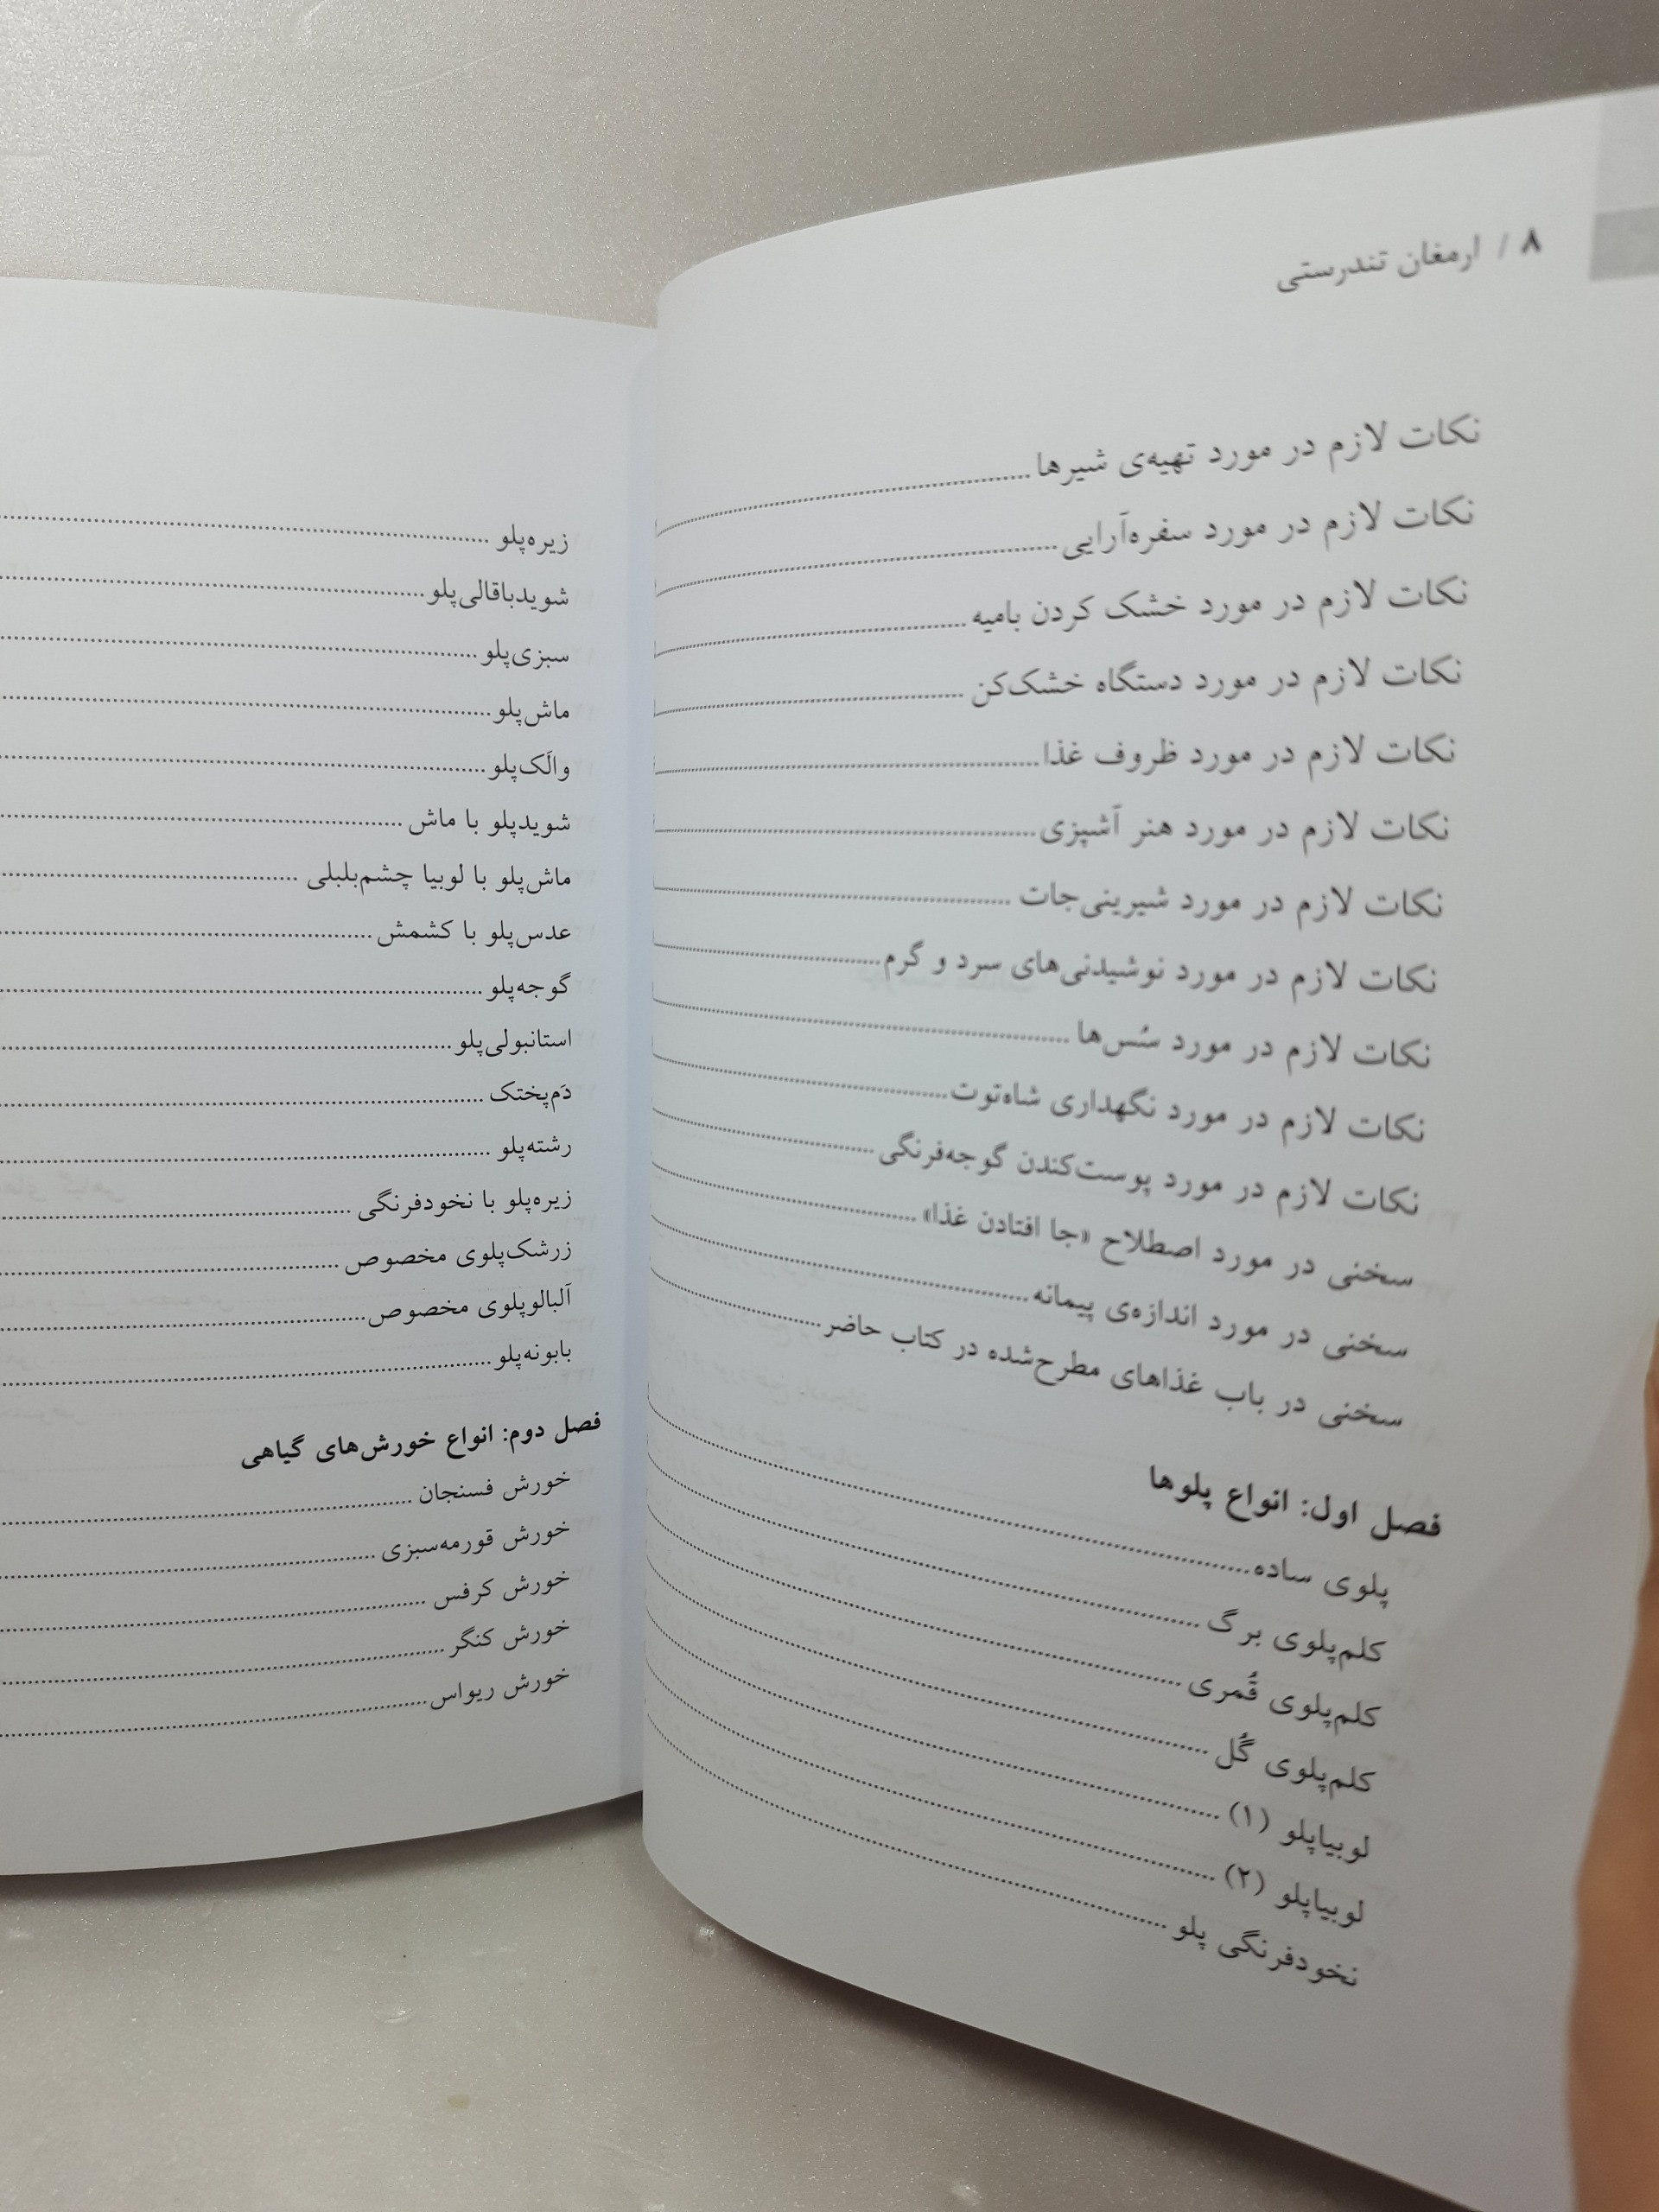 ۸ / ارمغان تندرستی
نکات لازم در مورد تهیه‌ی شیرها
نکات لازم در مورد سفره‌آرایی
نکات لازم در مورد خشک کردن بامیه
نکات لازم در مورد دستگاه خشک‌کن
نکات لازم در مورد ظروف غذا
نکات لازم در مورد هنر آشپزی
نکات لازم در مورد شیرینی‌جات
نکات لازم در مورد نوشیدنی‌های سرد و گرم
نکات لازم در مورد سُس‌ها
نکات لازم در مورد نگهداری شاه‌توت
نکات لازم در مورد پوست‌کندن گوجه‌فرنگی
سخنی در مورد اصطلاح «جا افتادن غذا»
سخنی در مورد اندازه‌ی پیمانه
سخنی در باب غذاهای مطرح‌شده در کتاب حاضر
فصل اول: انواع پلوها
پلوی ساده
کلم‌پلوی برگ
کلم‌پلوی قُمری
کلم‌پلوی گُل
لوبیاپلو (۱)
لوبیاپلو (۲)
نخودفرنگی پلو
زیره‌پلو
شویدباقالی‌پلو
سبزی‌پلو
ماش‌پلو
والَک‌پلو
شویدپلو با ماش
ماش‌پلو با لوبیا چشم‌بلبلی
عدس‌پلو با کشمش
گوجه‌پلو
استانبولی‌پلو
دَم‌پختک
رشته‌پلو
زیره‌پلو با نخودفرنگی
زرشک‌پلوی مخصوص
آلبالوپلوی مخصوص
بابونه‌پلو
فصل دوم: انواع خورش‌های گیاهی
خورش فسنجان
خورش قورمه‌سبزی
خورش کرفس
خورش کنگر
خورش ریواس